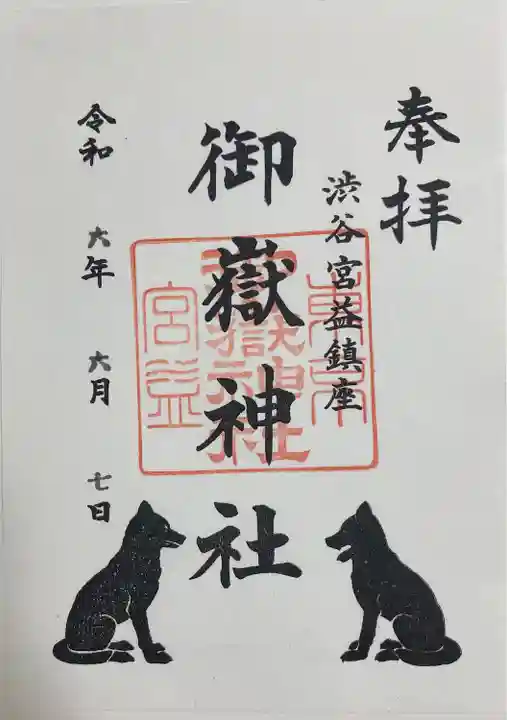 奉拝
渋谷宮益鎮座
御嶽神社
令和 六年 六月 七日
東京
宮益